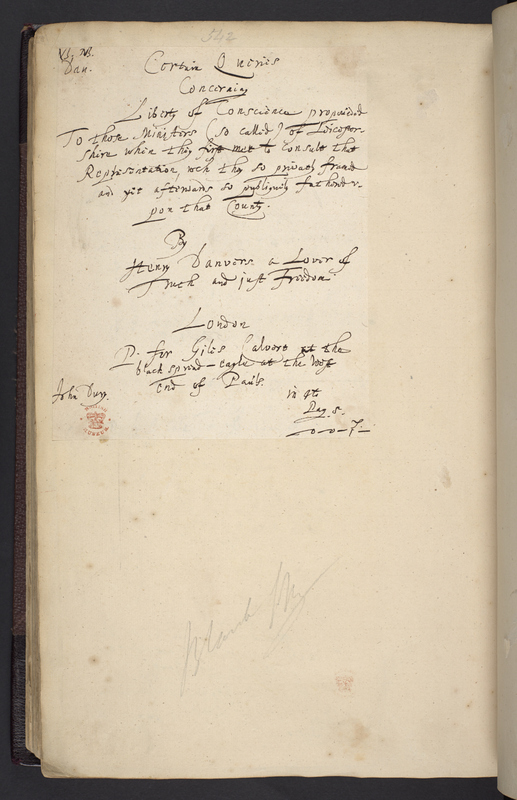 542
Dan.
Certain Queries
Concerning
Liberty of Conscience propounded
To those Ministers (so called) of Leicester-
shire when they first met to Consult that
Representation wch they so privatly framed
and yet afterwards so publiquely fathered u-
pon that County.
By
Henry Danvers a Lover of
Truth and just Freedom
London
P. for Giles Calvert at the
black spread-eagle at the West
End of Pauls.
John Dury.
in 4to
Pag. 5.
-0-0-7-